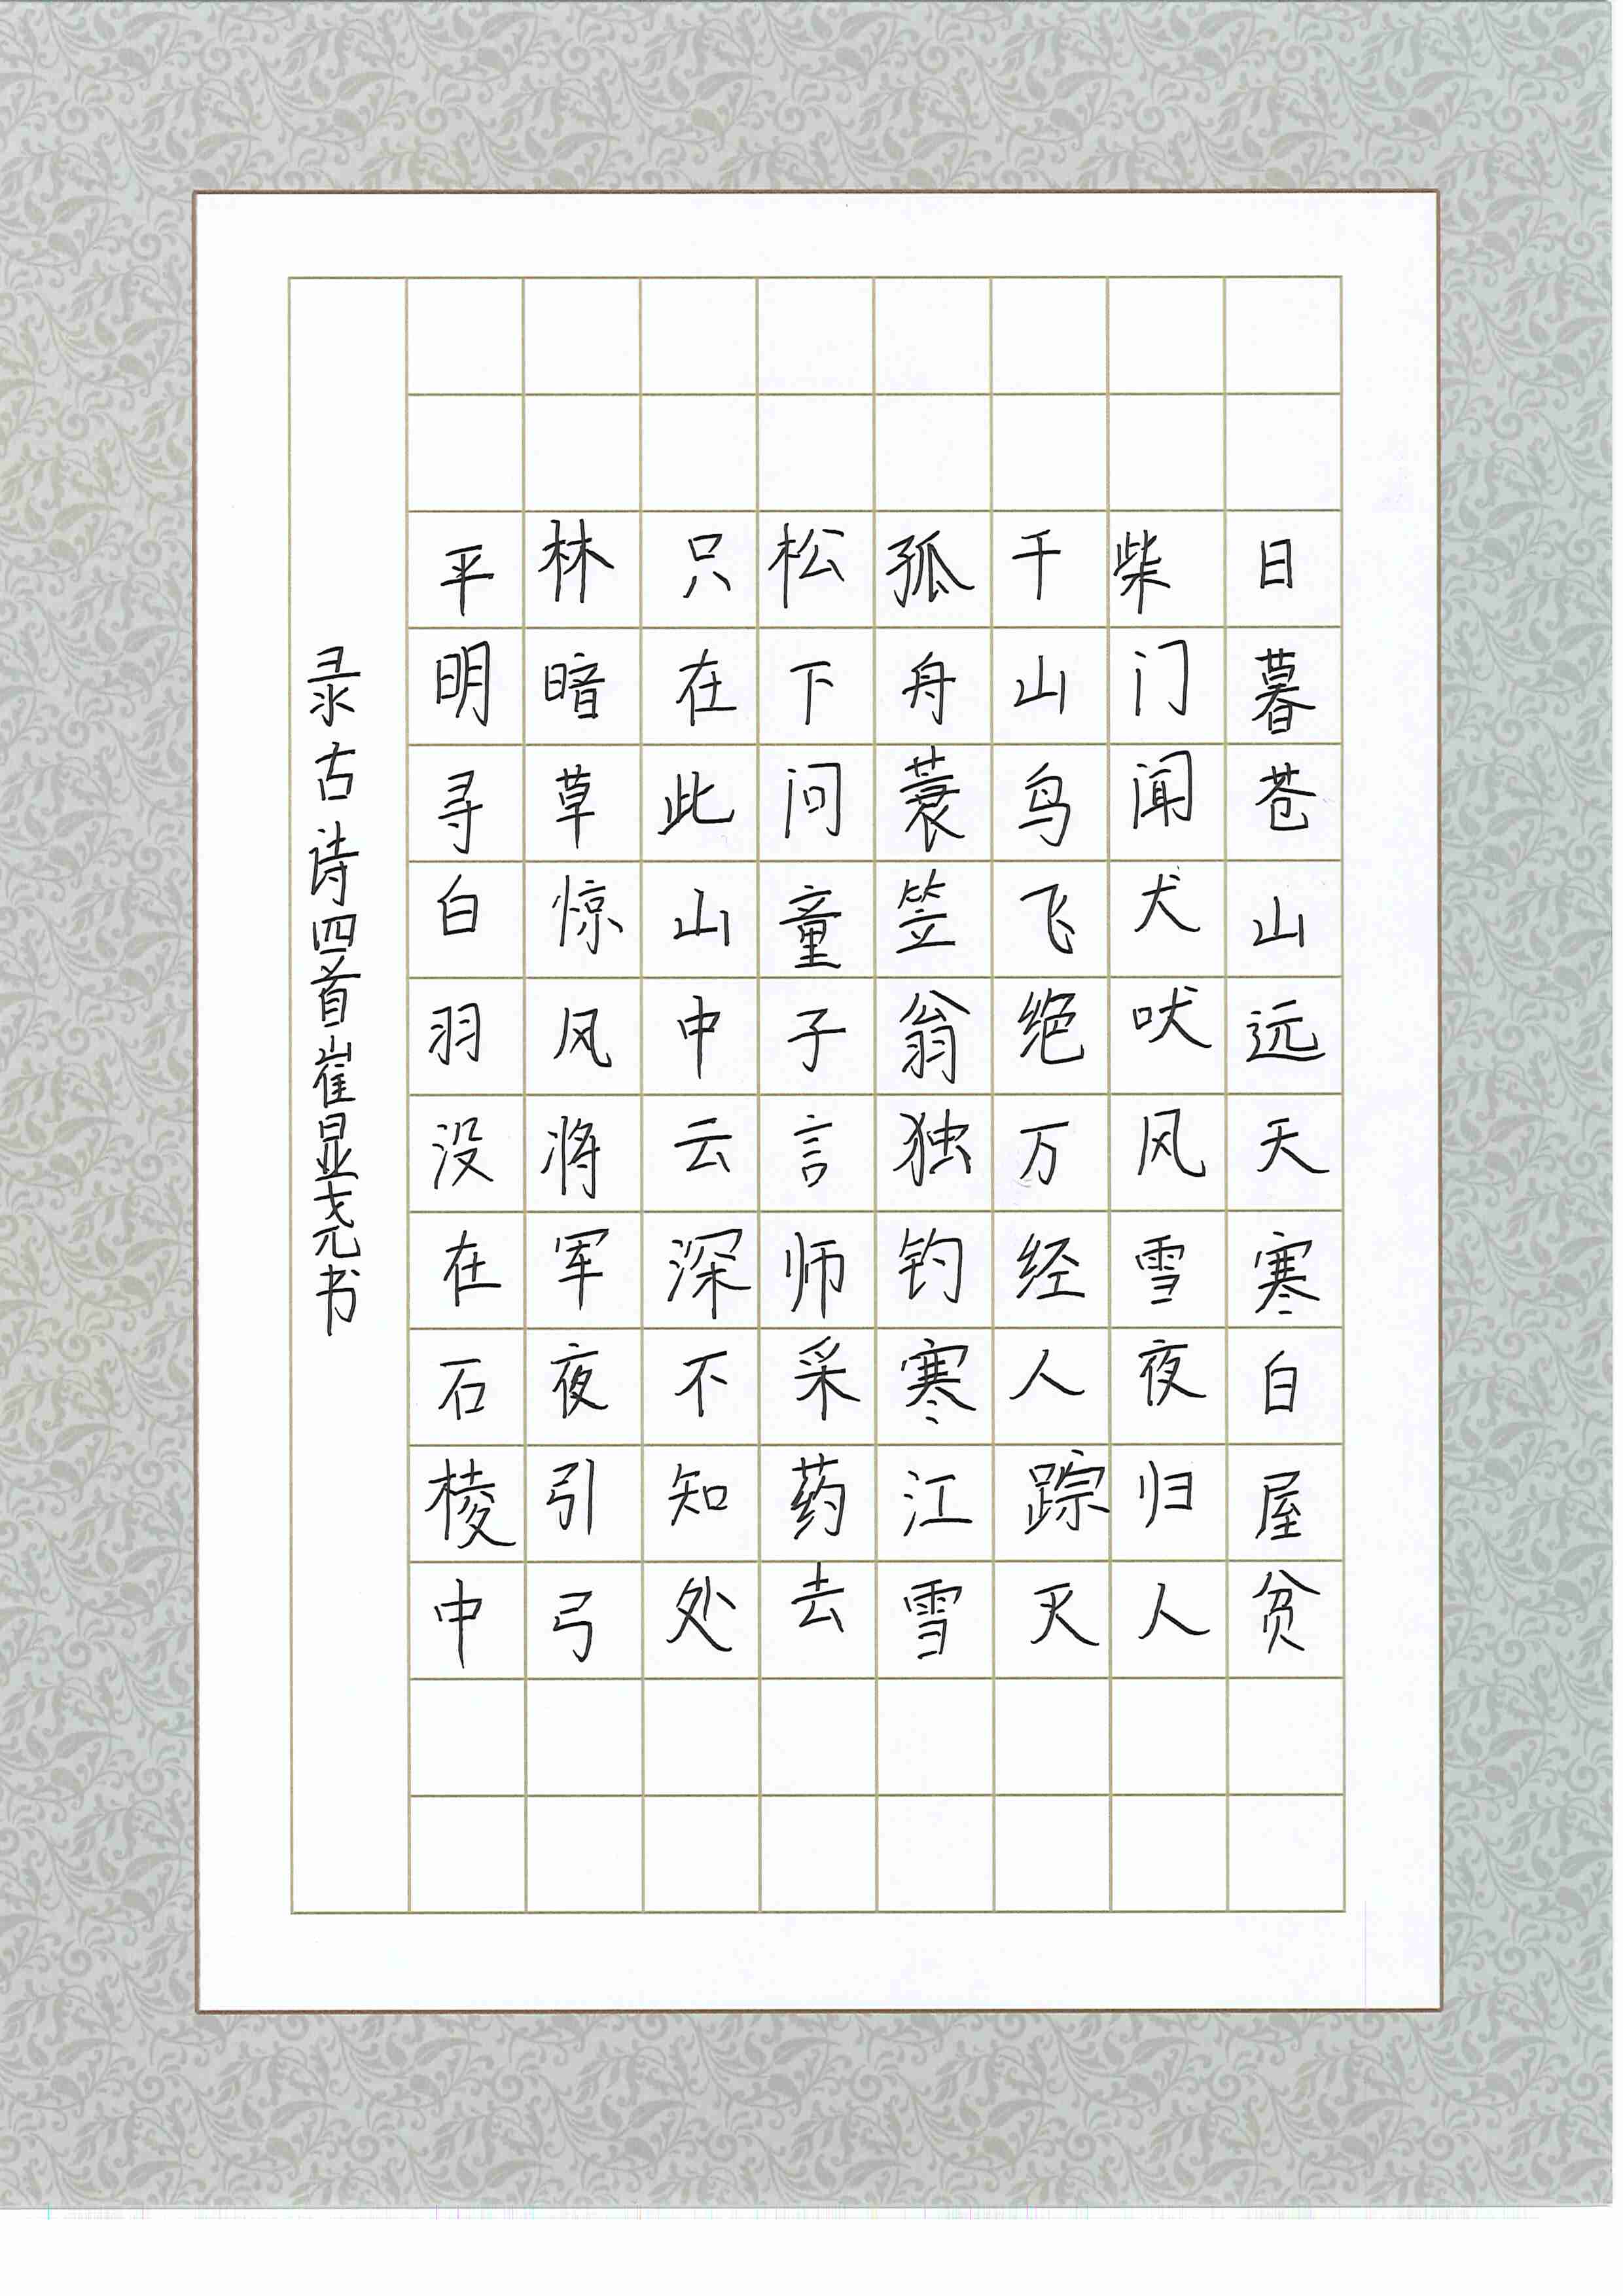 日暮苍山远天寒白屋贫
柴门闻犬吠风雪夜归人
千山鸟飞绝万经人踪灭
孤舟蓑笠翁独钓寒江雪
松下问童子言师采药去
只在此山中云深不知处
林暗草惊风将军夜引弓
平明寻白羽没在石棱中
录古诗四首崔显尧书